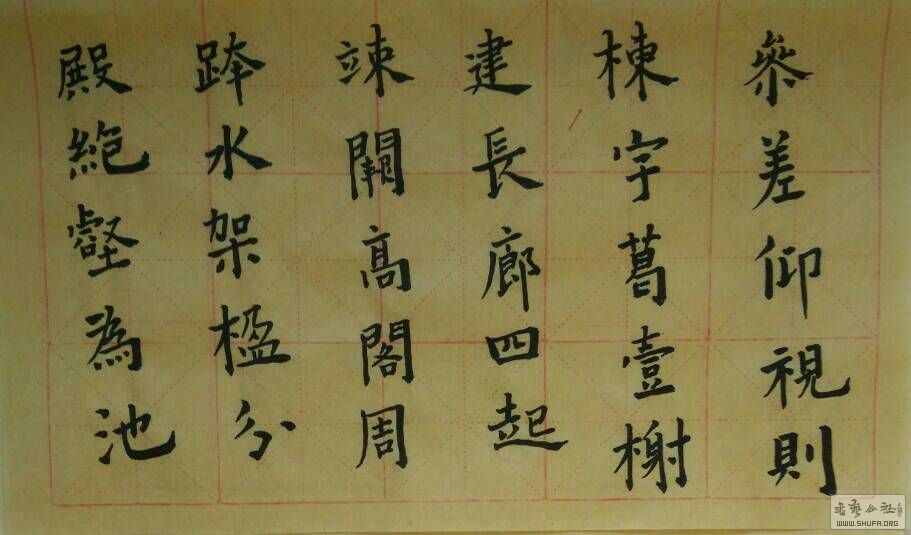 殿絶壑為池
跨水架楹分
竦闕高閣周
建長廊四起
棟宇葛壹榭
參差仰視則
WWW.SHUFA.ORG